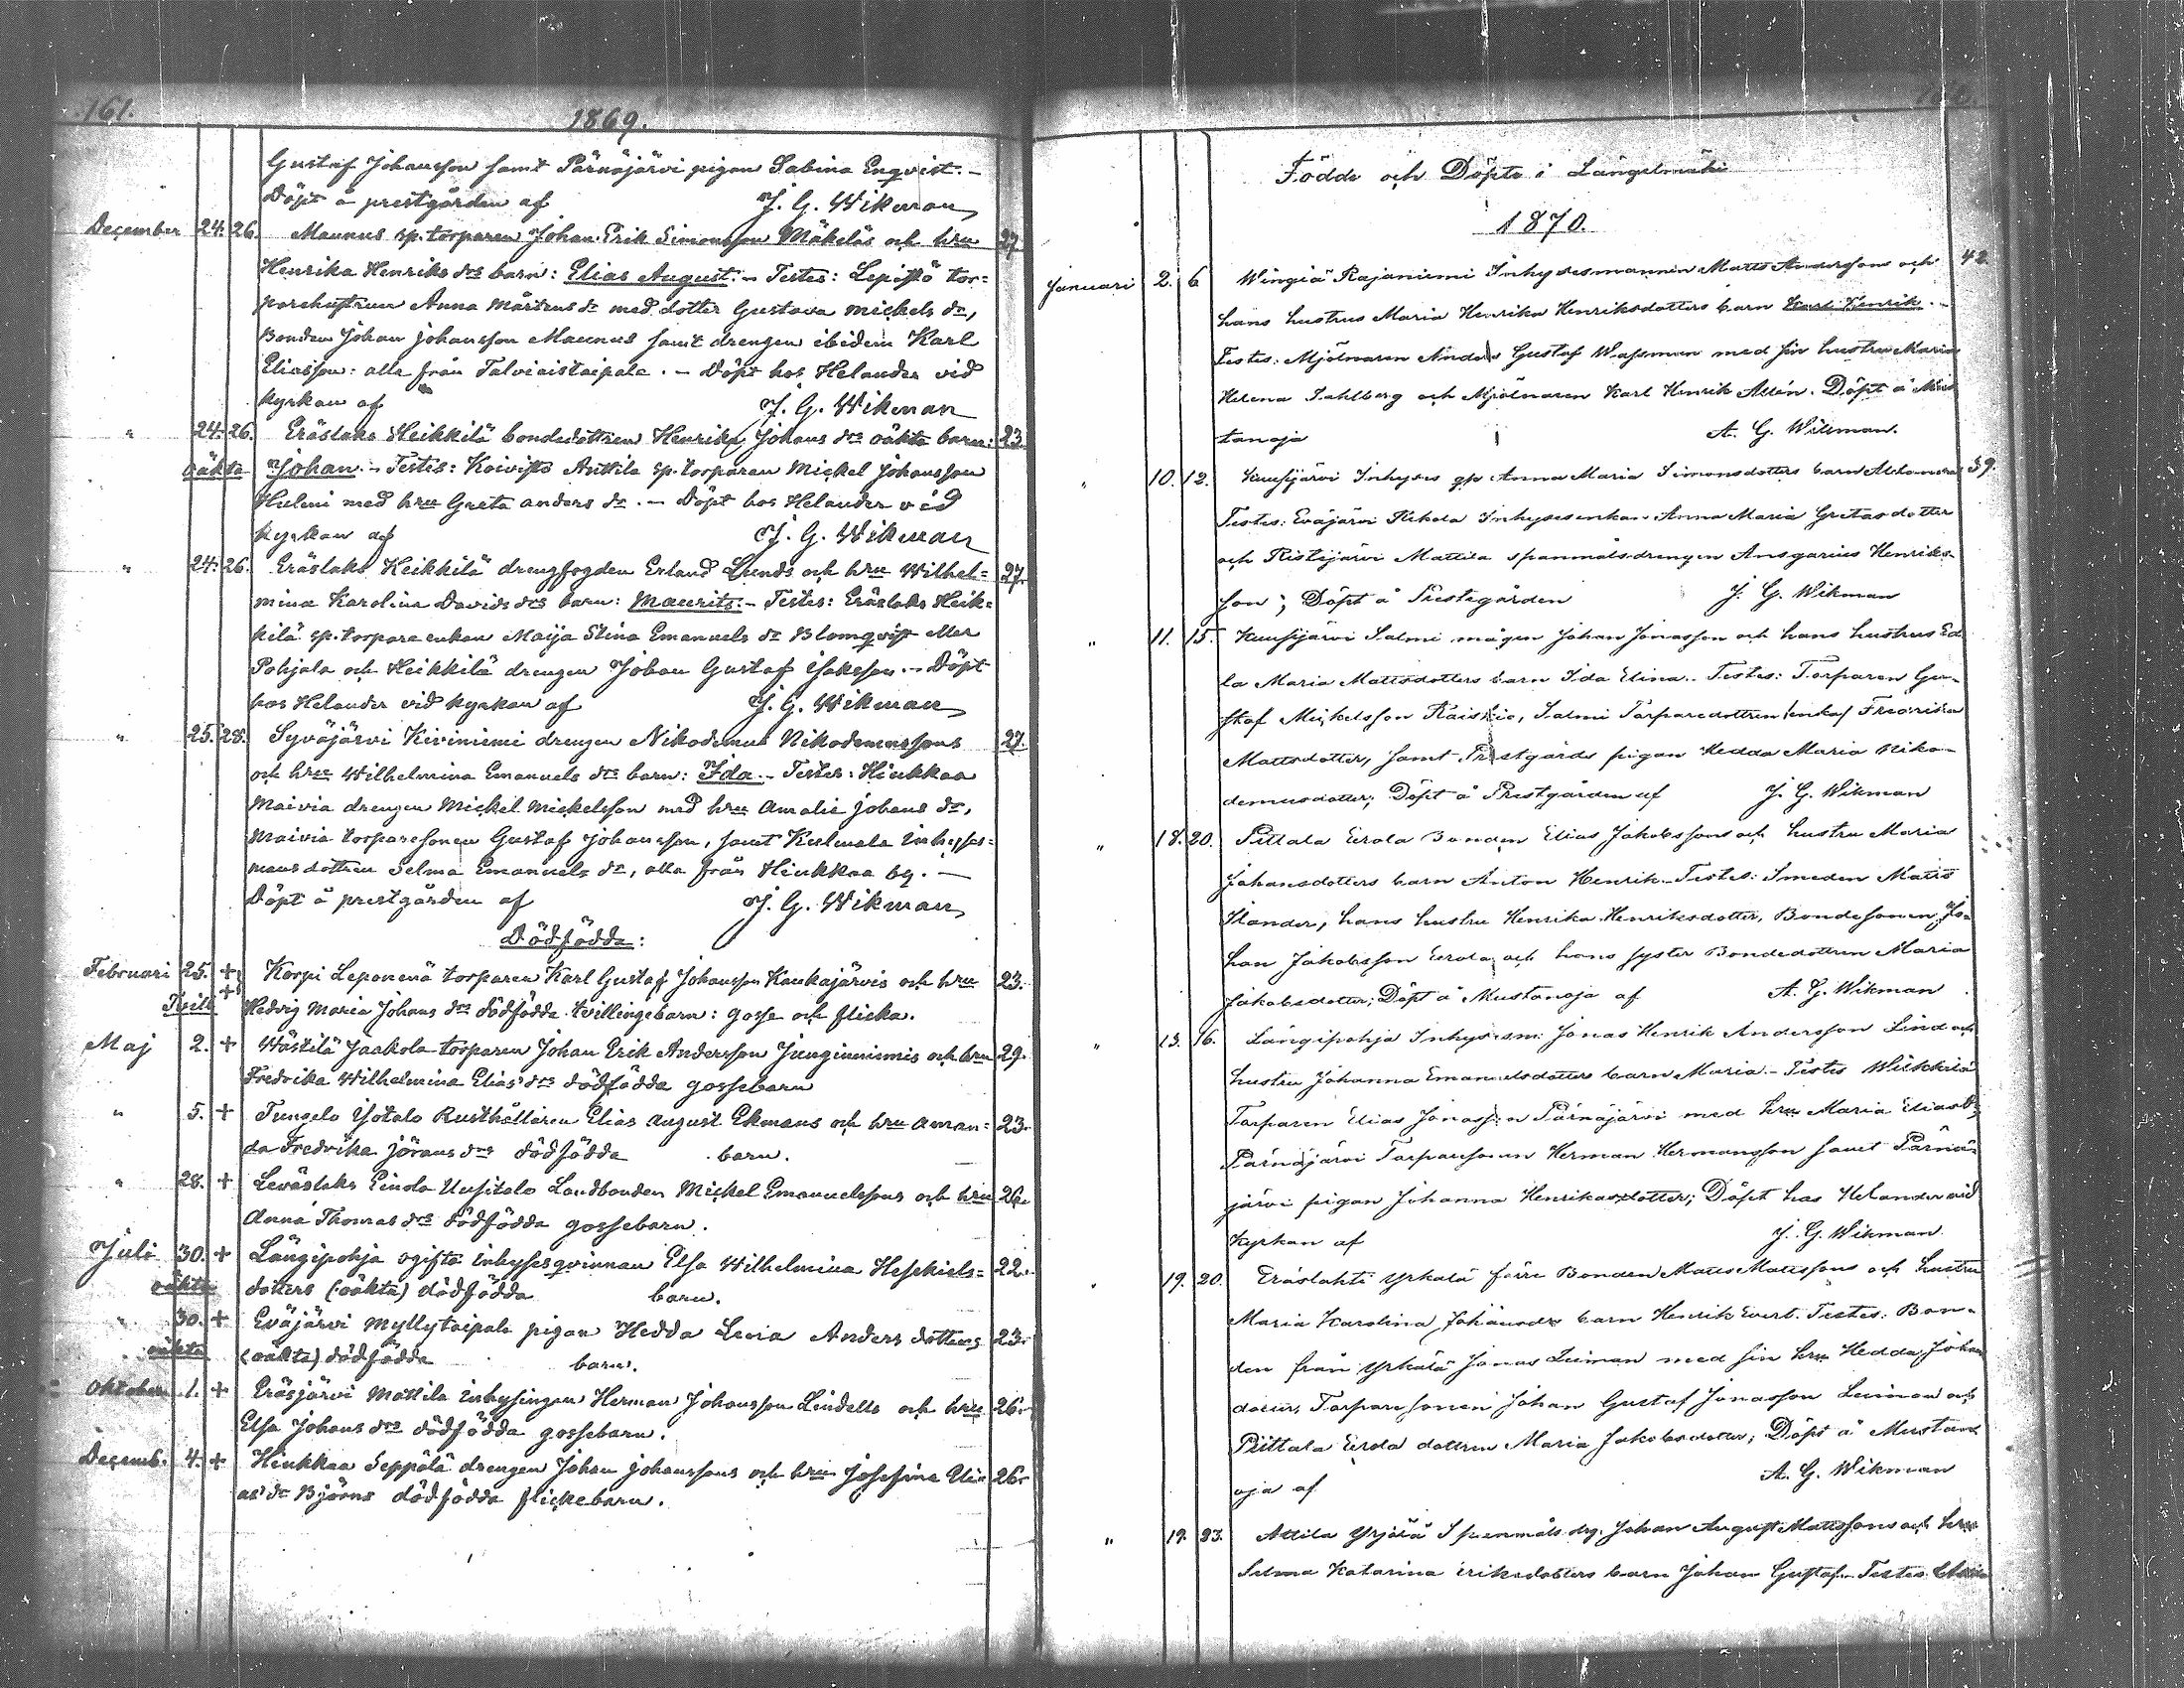 161.
1869.
Gustaf Johansson samt Pärnäjärvi pigan Sabina Enqvist. –
Döpt å prestgården af J. G. Wikman
December 24. 26. Maunus sp. torparen Johan Erik Simonsson Mäkeläs och hru 27
Henrika Henriks drs barn: Elias August. – Testes: Lepistö tor=
parehustrun Anna Mårtens dr med dotter Gustava Mickels dr,
Bonden Johan Johansson Maunus samt drengen ibidem Karl
Eliasson: alla från Talviaistaipale. – Döpt hos Helander vid
kyrkan af J. G. Wikman
" 24. 26. Eräslaks Heikkilä bondedottren Henrika Johans drs oäkta barn: 23.
oäkta Johan. – Testes: Koivisto Anttila sp. torparen Mickel Johansson
Hulmi med hru Greta Anders dr. – Döpt hos Helander vid
kyrkan af J. G. Wikman
" 24. 26. Eräslaks Heikkilä drengfogden Erland Lunds och hru Wilhel= 27.
mina Karolina Davids drs barn: Maurits. – Testes: Eräslaks Heik=
kilä sp. torpare enkan Maija Stina Emanuels dr Blomqvist eller
Pohjala och Heikkilä drengen Johan Gustaf Isaksson. – Döpt
hos Helander vid kyrkan af J. G. Wikman
" 25. 28. Syväjärvi Kiviniemi drengen Nikodemus Nikodemussons 27.
och hru Wilhelmina Emanuels drs barn: Ida. – Testes: Hiukkaa
Maivia drengen Mickel Mickelsson med hru Amalia Johans dr,
Maivia torparesonen Gustaf Johansson, samt Kulmala inhyses=
mans dottren Selma Emanuels dr, alla från Hiukkaa by. –
Döpt å prestgården af J. G. Wikman
Dödfödda:
Februari 25. + Korpi Leponenä torparen Karl Gustaf Johansson Kaukajärvis och hru 23.
Tvill. + Hedvig Maria Johans drs dödfödda tvillingebarn: gosse och flicka.
Maj 2. + Wästilä Jaakola torparen Johan Erik Andersson Junginniemis och hru 29.
Fredrika Wilhelmina Elias drs dödfödda gossebarn
" 5. + Tungelo Isotalo Rusthållaren Elias August Ekmans och hru Aman= 23.
da Fredrika Jörans drs dödfödda barn.
" 28. + Leväslaks Eindo Uusitalo Landbonden Mickel Emanuelssons och hru 26.
Anna Thomas drs dödfödda gossebarn.
Juli 30. + Längipohja ogifta inhysesqvinnan Elsa Wilhelmina Heskiels= 22.
oäkta dotters (oäkta) dödfödda barn.
" 30. + Eväjärvi Myllytaipale pigan Hedda Lovia Anders dotters 23.
oäkta (oäkta) dödfödda barn.
Oktober 1. + Eräsjärvi Mattila inhysingen Herman Johansson Lindells och hru 26.
Elsa Johans drs dödfödda gossebarn.
Decemb. 4. + Hiukkaa Seppälä drengen Johan Johanssons och hru Josefina Eli= 26.
as dr Björns dödfödda flickebarn.
Födde och Döpte i Längelmäki
1870.
Januari 2. 6 Wingiä Rajaniemi Inhysesmannen Matts Anderssons och 42.
hans hustrus Maria Henrika Henriksdotters barn Karl Henrik. –
Testes: Mjölnaren Anders Gustaf Wassman med sin hustru Maria
Helena Sahlberg och Mjölnaren Karl Henrik Allén. Döpt å Mus
tanoja A. G. Wikman.
" 10. 12. Kuusijärvi Inhyses qp Anna Maria Simonsdotters barn 39.
Testes: Eväjärvi Inhysesenkan Anna Maria Gretasdotter
och Ristijärvi Mattila spanmålsdrengen Ansgarius Henriks-
son; Döpt å Prestegården J. G. Wikman
" 11. 15. Kuusijärvi Salmi mågen Johan Jonasson och hans hustrus Ed
la Maria Mattsdotters barn Ida Elina. Testes: Torparen Gu-
staf Mickelsson Raiskio, Salmi Torparedottren (enka) Fredrika
Mattsdotter, samt Prestgårds pigan Hedda Maria Niko-
demusdotter; Döpt å Prestgården af J. G. Wikman
" 18. 20. Pittala Eerola Bonden Elias Jakobssons och hustru Maria
Johansdotters barn Anton Henrik. Testes: Smeden Matts
Ilander, hans hustru Henrika Henriksdotter, Bondesonen Jo-
han Jakobsson Eerola och hans syster Bondedottren Maria
Jakobsdotter; Döpt å Mustanoja af A. G. Wikman
" 13. 16. Längipohja Inhysesm. Jonas Henrik Andersson Lind och
hustru Johanna Emanuelsdotters barn Maria. – Testes Wilkkilä
Torparen Elias Jonasson Pärnäjärvi med hru Maria Eliasdr,
Pärnäjärvi Torparesonen Herman Hermansson samt Pärnä-
järvi pigan Johanna Henrikasdotter; Döpt hos Helander vid
Kyrkan af J. G. Wikman
" 19. 20. Eräslahti Yrkälä förre Bonden Matts Mattssons och hustru
Maria Karolina Johansdr barn Henrik Evert. Testes: Bon-
den från Yrkälä Jonas Luiman med sin hru Hedda Johans
dotter, Torparesonen Johan Gustaf Jonasson Luiman och
Pittala Eerola dottren Maria Jakobsdotter; Döpt å Mustan
oja af A. G. Wikman
" 19. 23. Attila Yrjölä Spanmåls drg. Johan August Mattssons och hru
Selma Katarina Eriksdotters barn Johan Gustaf. Testes: Attila